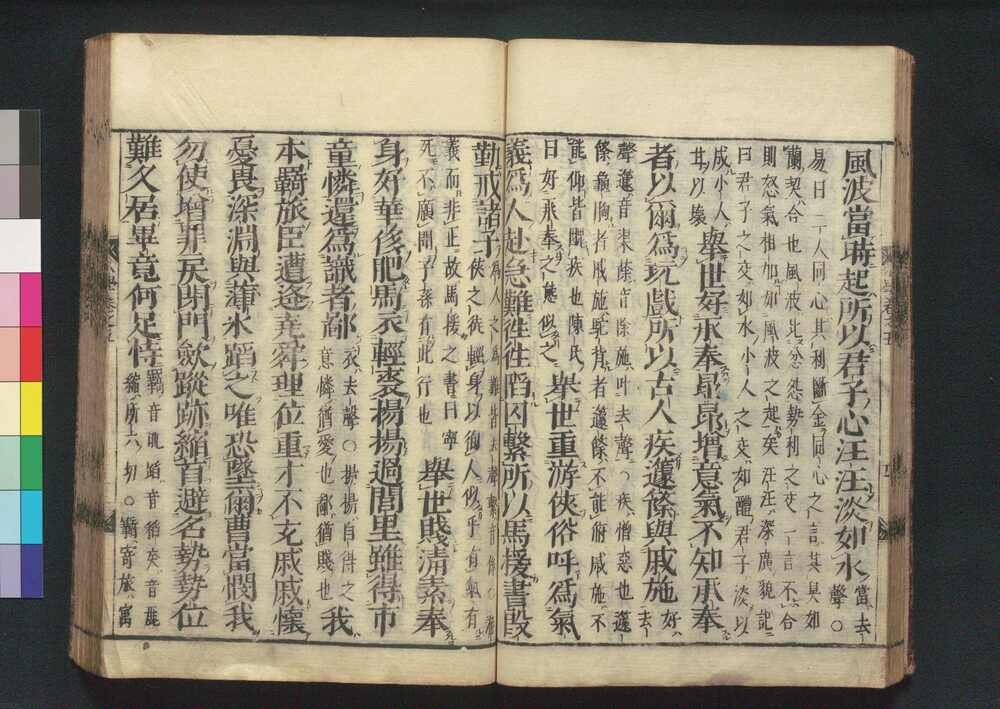 風波當時起所以君子心汪汪淡如水當去聲○
易曰二人同心其利斷金同心之言其臭如
蘭契合也風波比忿怨勢利之交一言不合
則怒氣相加如風波之起矣汪汪深廣貌記
曰君子之交如水小人之交如醴君子淡以
成小人
甘以壞
舉世好承奉昻昻增意氣不知承奉
者以爾爲玩戲所以古人疾籧篨與戚施好去
聲籧音渠篨音除施叶去聲○疾憎惡也籧
篨龜胸者戚施駝背者籧篨不能俯戚施不
能仰皆醜疾也陳氏
曰好承奉之態似之
舉世重游俠俗呼爲氣
義爲人赴急難徃徃䧟囚繫所以馬援書殷
勤戒諸子
俠之徒輕身以徇人似乎有氣有
義而非正故馬援之書曰寧
死不願聞子孫有此行也
舉世賤清素奉
身好華侈肥馬衣輕裘揚揚過閭里雖得市
童憐還爲識者鄙
衣去聲○揚揚自得之
意憐猶愛也鄙猶賤也
我
本羇旅臣遭逢堯舜理位重才不充戚戚懷
憂畏深淵與薄氷蹈之唯恐墜爾曹當憫我
勿使增罪戾閉門斂蹤跡縮首避名勢勢位
難久居畢竟何足恃
羇音肌蹈音稻戾音麗
縮所六切○羇寄旅寓